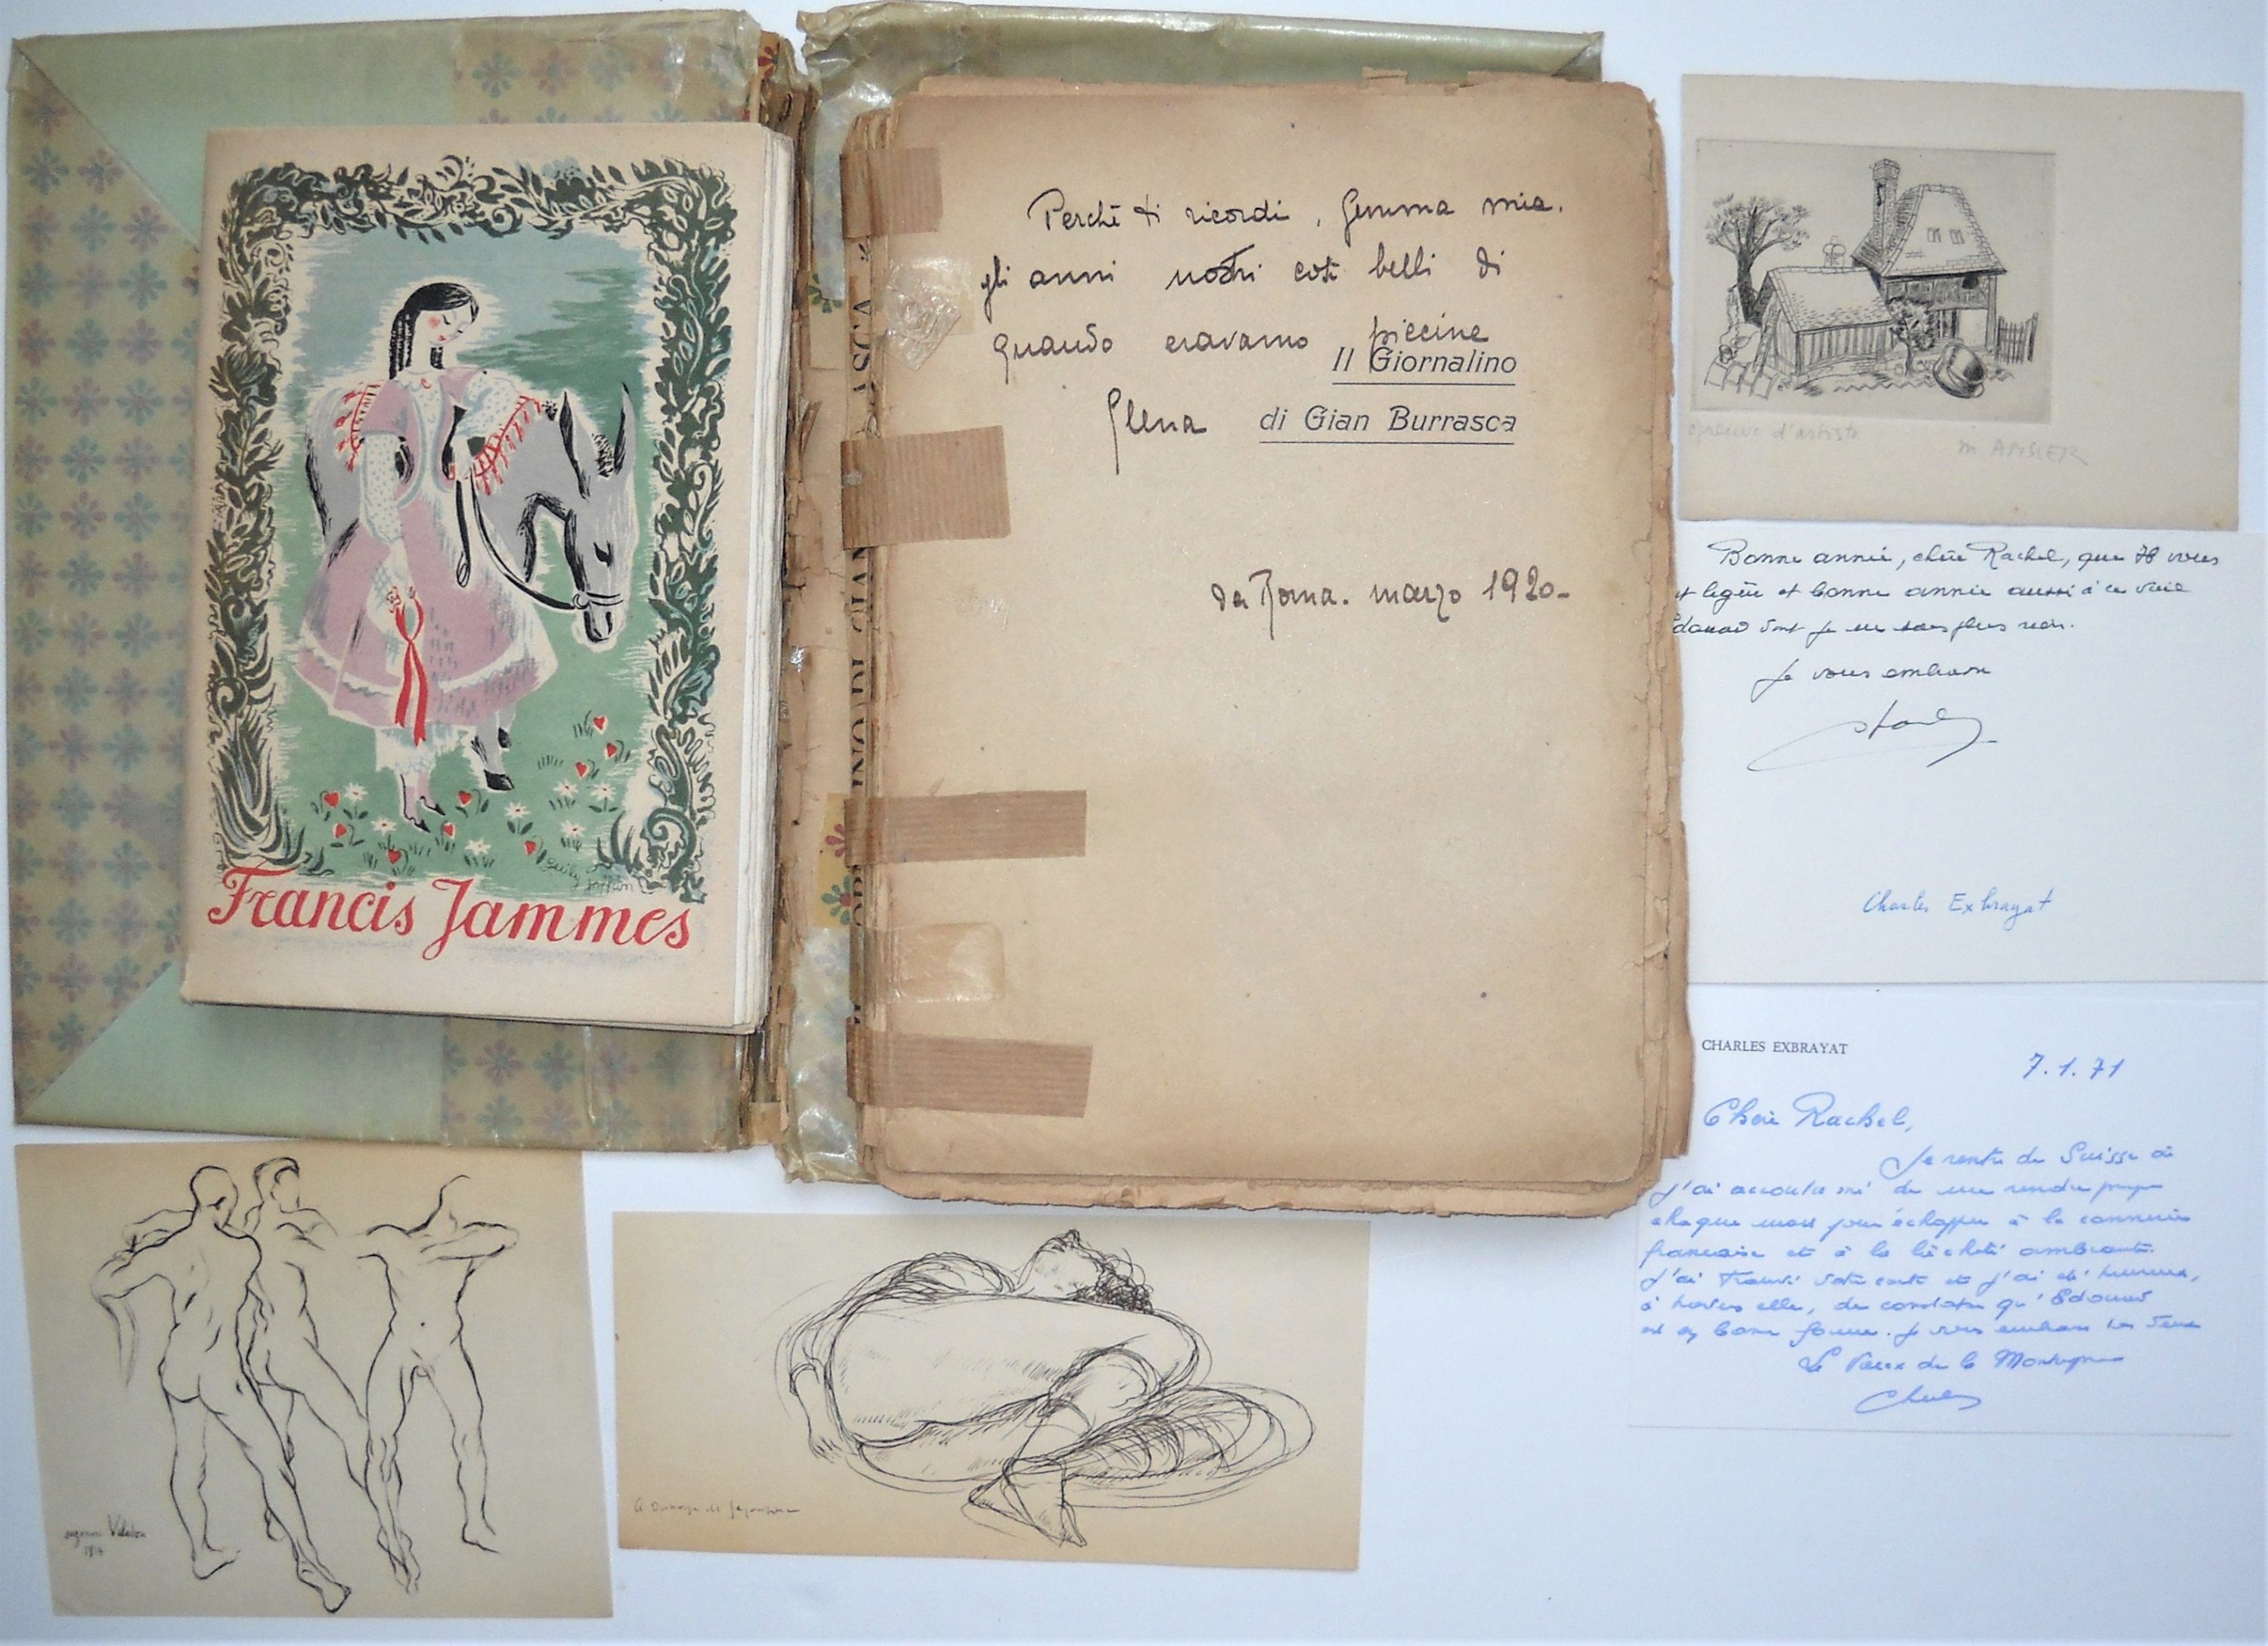 Francis Jammes
Perchè ti ricordi, Gemma mia.
gli anni nostri così belli di
quando eravamo piccine
Il Giornalino
di Gian Burrasca
Elena
da Roma. marzo 1920-
épreuve d'artiste
m AMSLER
Bonne année, chère Rachel, que 78 vous
légère et bonne année aussi à ce vieil
dont je ne sais plus rien.
Je vous embrasse
Charles Exbrayat
CHARLES EXBRAYAT
7.1.71
Chère Rachel,
Je rentre de Suisse où
j'ai accoutumé de me rendre presque
chaque mois pour échapper à la connerie
française et à la lâcheté ambiante.
J'ai trouvé votre carte et j'ai été heureux,
à travers elle, de constater qu'Edouard
est en bonne forme. Je vous embrasse tous deux
Le Vieux de la Montagne
Charles
suzanne Valadon
A Dunoyer de Segonzac